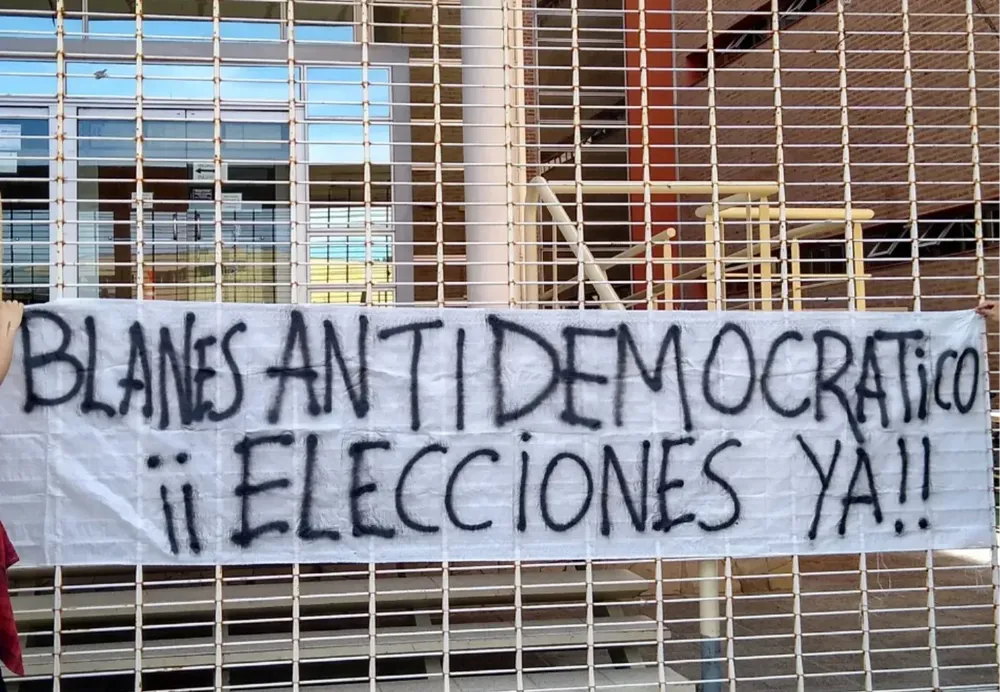 BLANES ANTIDEMOCRATiCO
¡¡ELECCiONES YA!!